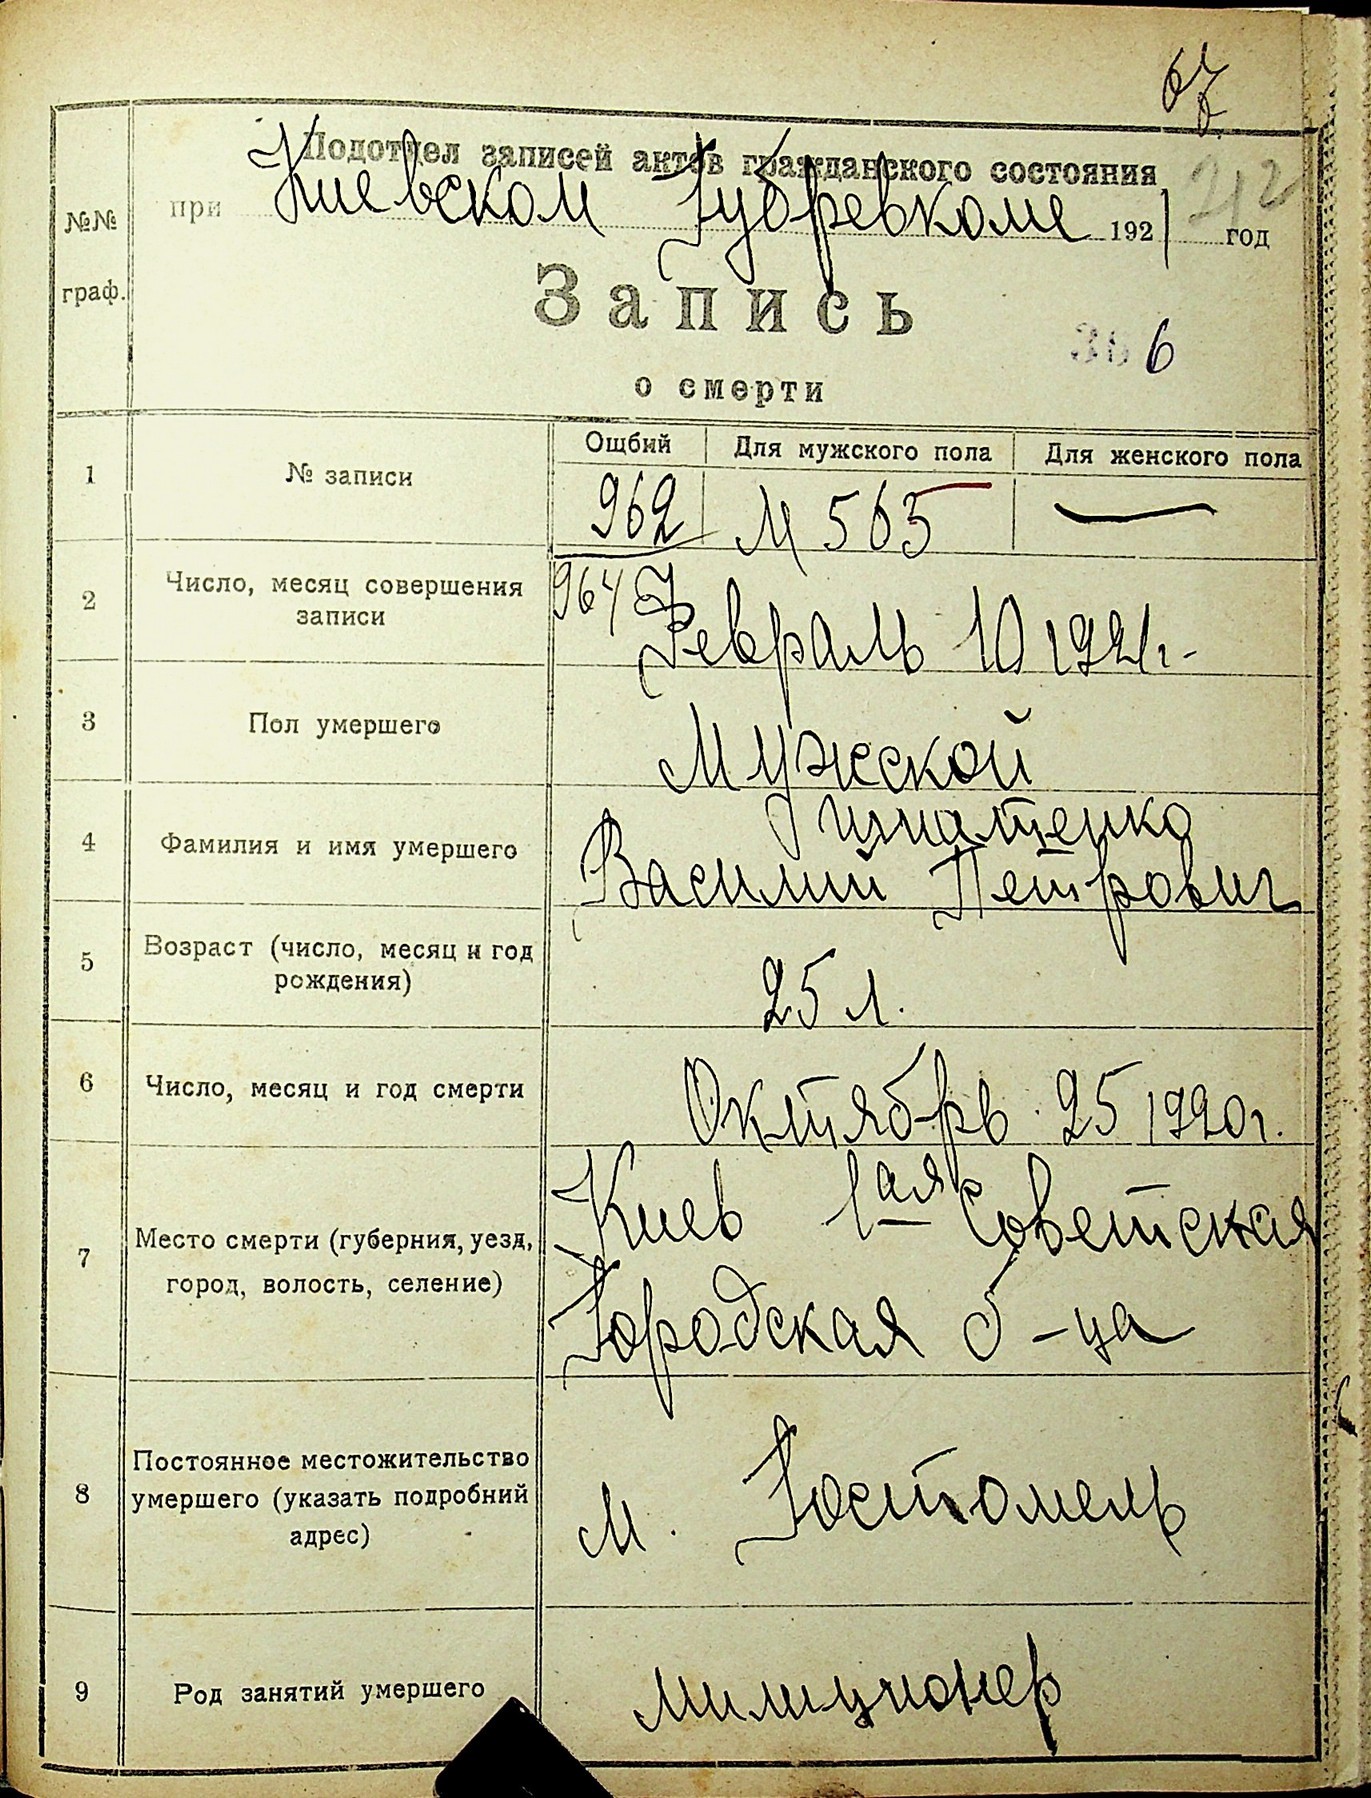 67
Подотдел записей актов гражданского состояния
при Киевском Губревкоме 1921 год
212
№№ граф.
Запись
6
о смерти
Ощбий Для мужского пола Для женского пола
1 № записи 962 М 565 —
2 Число, месяц совершения записи 964 Февраль 10 1921г.
3 Пол умершего Мужской
4 Фамилия и имя умершего Игнатенко
Василий Петрович
5 Возраст (число, месяц и год рождения) 25 л.
6 Число, месяц и год смерти Октябрь 25 1920г.
7 Место смерти (губерния, уезд, город, волость, селение) Киев 1ая Советская
Городская б-ца
8 Постоянное местожительство умершего (указать подробний адрес) м. Гостомель
9 Род занятий умершего милиционер